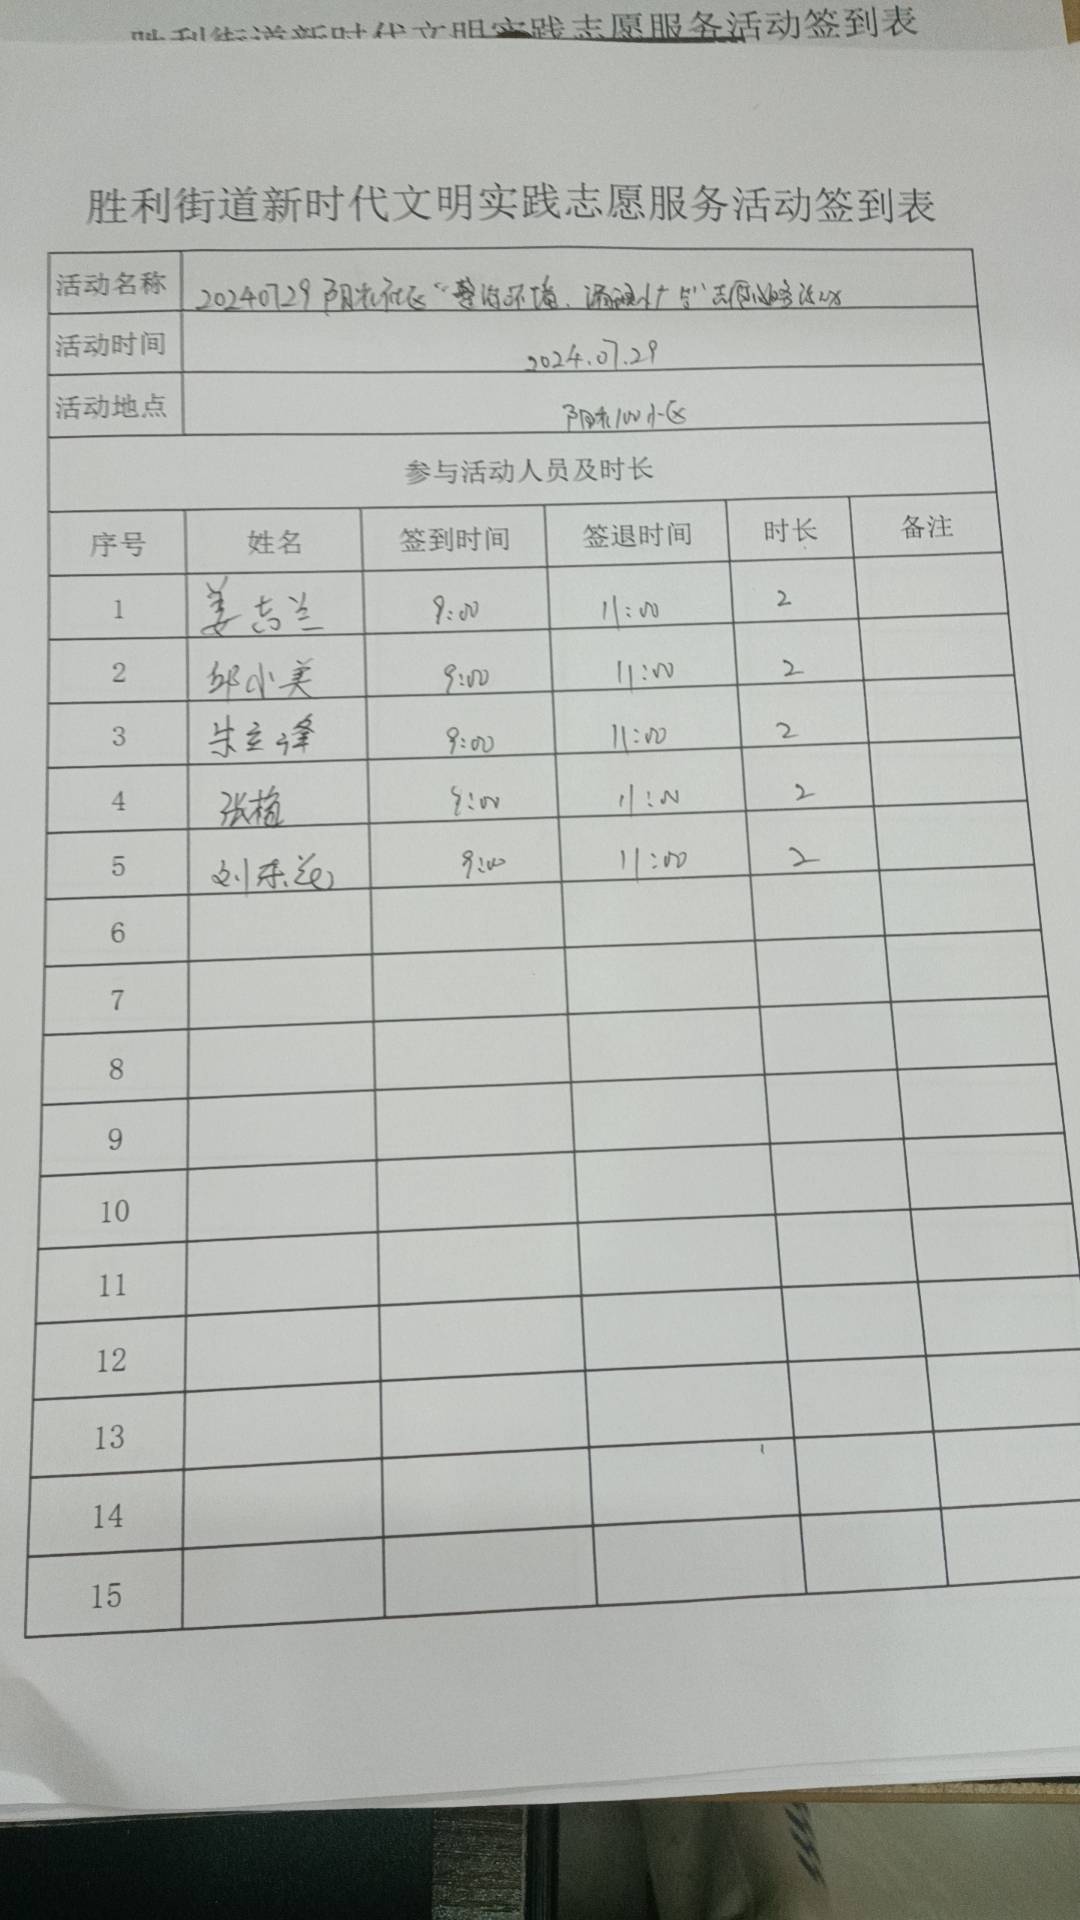 胜利街道新时代文明实践志愿服务活动签到表
胜利街道新时代文明实践志愿服务活动签到表
活动名称 20240729阳光社区“整治环境、清理小广告”志愿服务活动
活动时间 2024.07.29
活动地点 阳光100小区
参与活动人员及时长
序号 姓名 签到时间 签退时间 时长 备注
1 姜志兰 9:00 11:00 2
2 邱小美 9:00 11:00 2
3 朱立锋 9:00 11:00 2
4 张 9:00 11:00 2
5 刘东 9:00 11:00 2
6
7
8
9
10
11
12
13
14
15